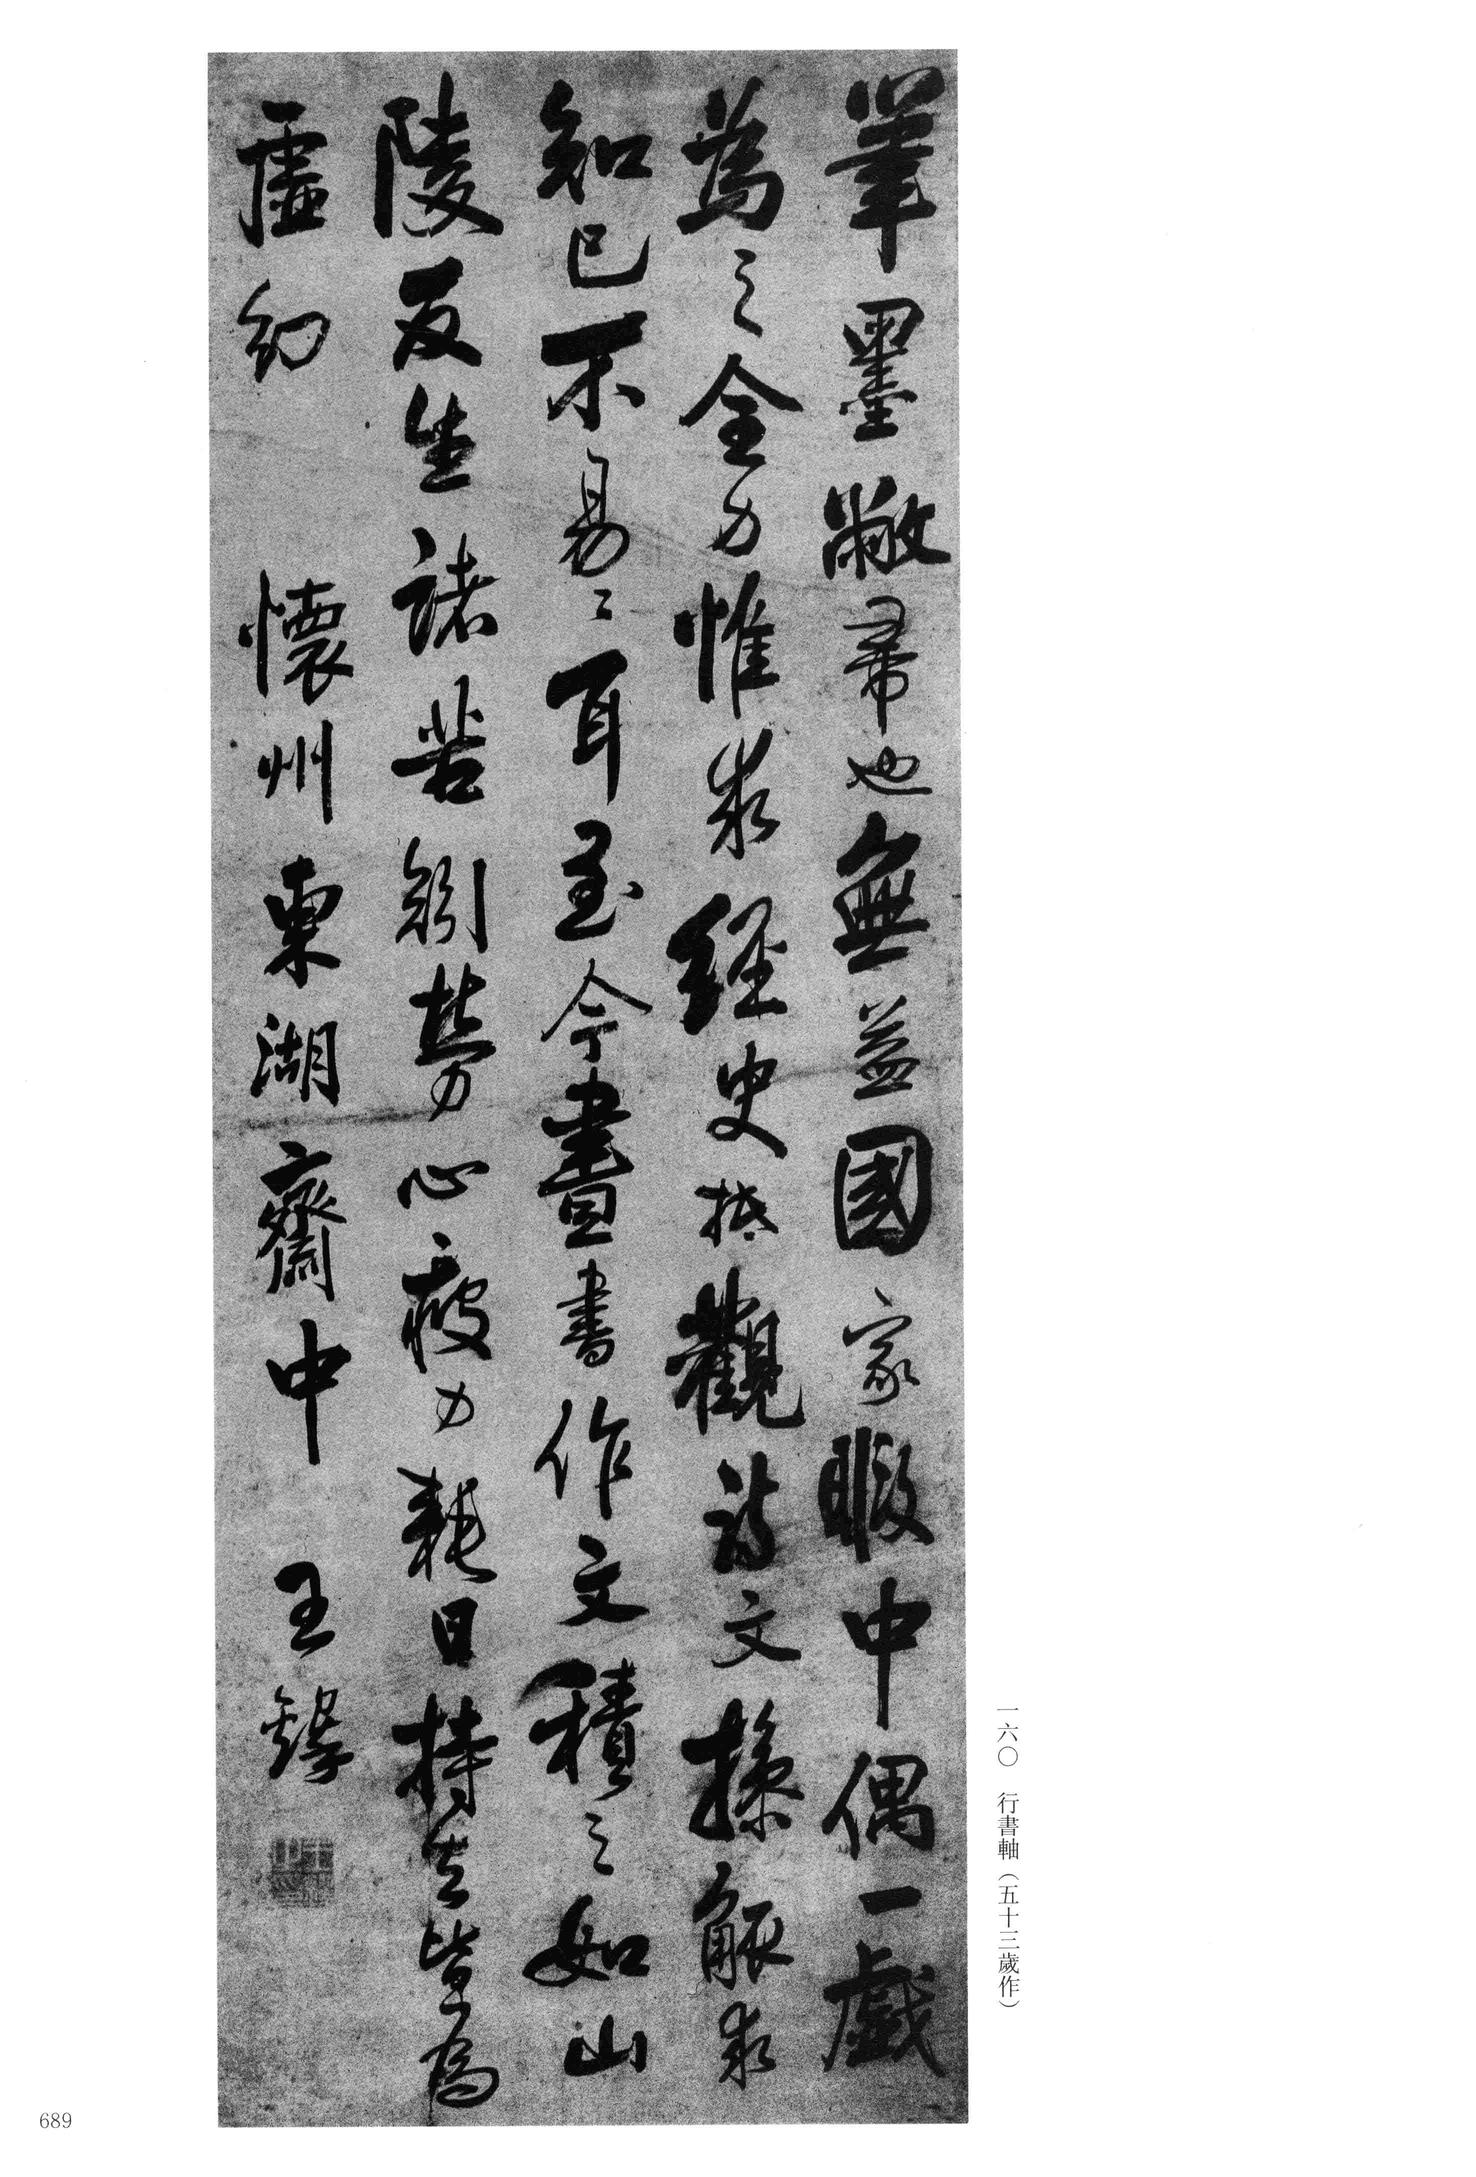 筆墨敝帚也無益國家暇中偶一戲
為之全力惟求經史攄觀詩文操觚求
知己不易易耳至今畫書作文積之如山
陵反生諸苦劍勞心疲力耗日持去皆為
虛幻 懷州東湖齋中 王鐸
一六〇 行書軸（五十三歲作）
689